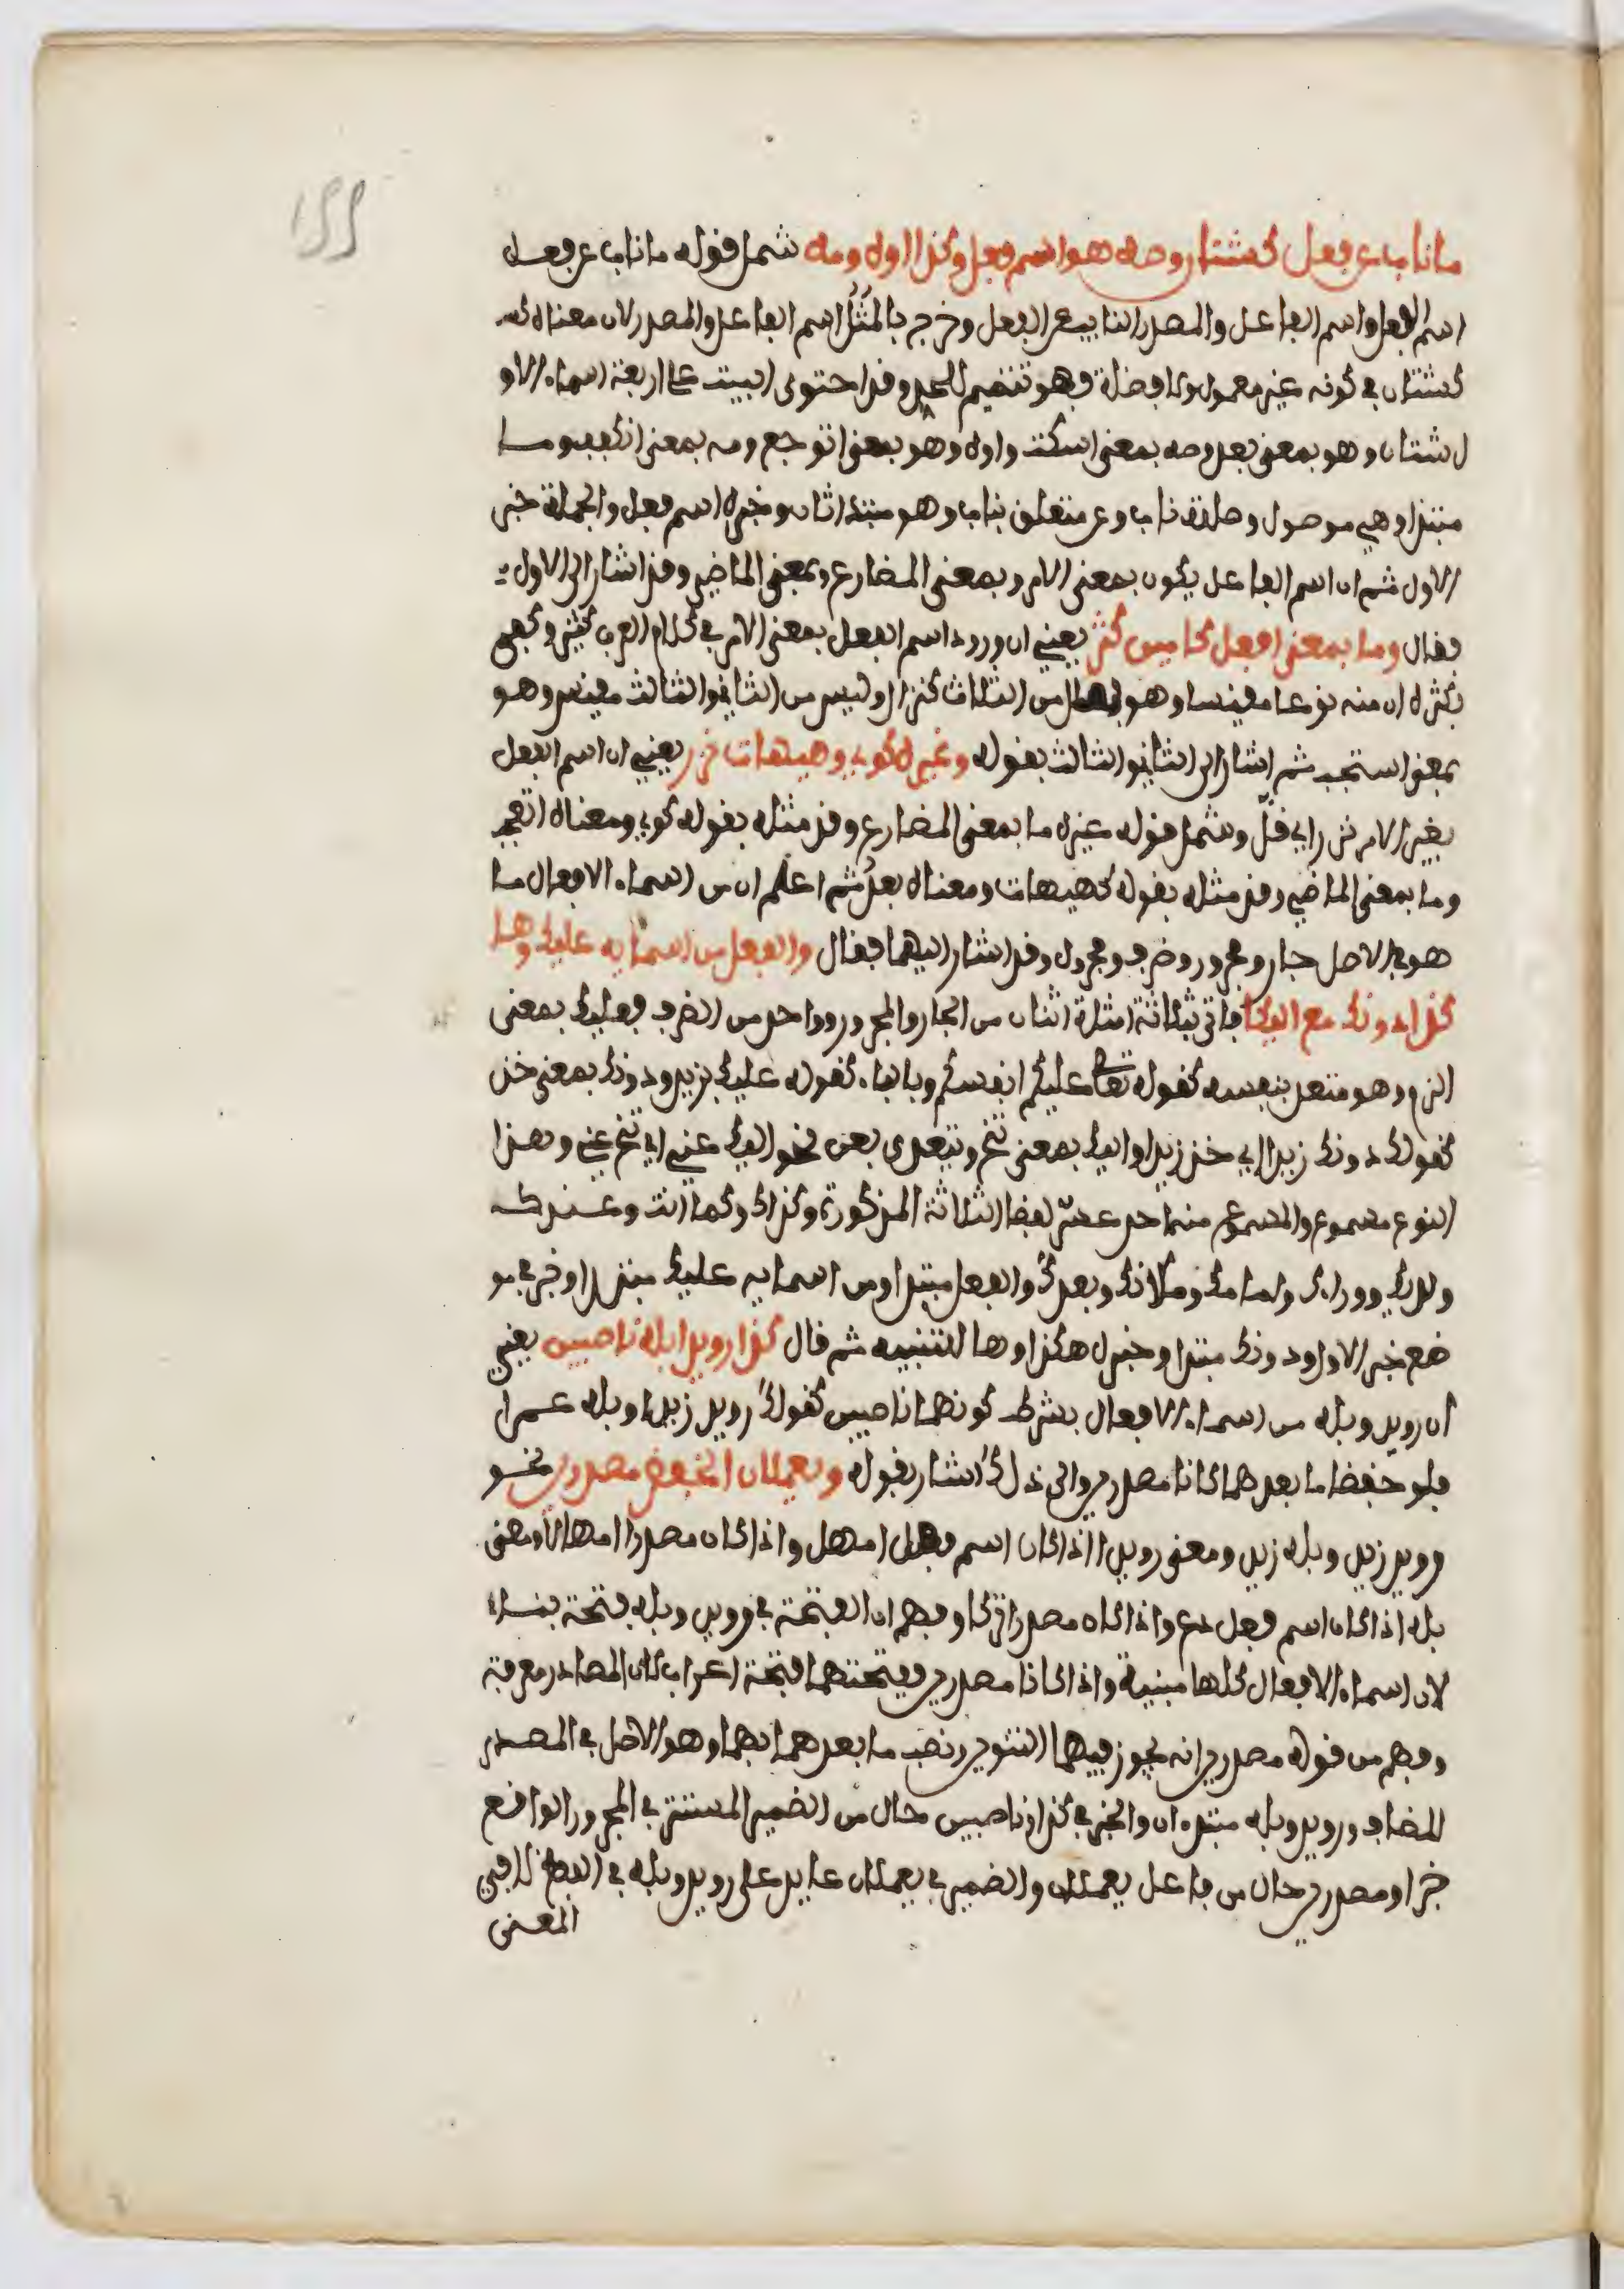 ١٢٢
ما ناب عن فعل كشتان وصه هو اسم فعل وكذا اوه ومه شمل قوله ما ناب عن فعل
اسم الفعل واسم الفاعل والمصدر النايب عن الفعل وخرج بالمثل اسم الفاعل والمصدر لان معناه كـ
كشتان في كونه غير معمول ولا فضلة فهو تتميم للحد وقد احتوى البيت على اربعة اسماء الاو
ل شتان وهو بمعنى بعد وصه بمعنى اسكت واوه وهو بمعنى اتوجع ومه بمعنى انكفف وما
مبتدا وهي موصول وصلته ناب وعن متعلق بناب وهو مبتدا ثان وخبره اسم فعل والجملة خبر
الاول ثم ان اسم الفاعل يكون بمعنى الامر وبمعنى المضارع وبمعنى الماضي وقد اشار الى الاول
فقال وما بمعنى افعل كامين كثر يعني ان ورود اسم الفعل بمعنى الامر في كلام العرب كثير وفهم
بكثره ان منه نوعا مقيسا وهو من الثلاث كنزال وليس من الثاني والثالث مقيس وهو
بمعنى استجب ثم اشار الى الثاني والثالث بقوله وغيره كوي وهيهات نزر يعني ان اسم الفعل
بغير الامر نزر اي قل وشمل قوله غيره ما بمعنى المضارع وقد مثله بقوله كوي ومعناه اتعجب
وما بمعنى الماضي وقد مثله بقوله كهيهات ومعناه بعد ثم اعلم ان من اسماء الافعال ما
هو في الاصل جار ومجرور وضرف ومجرور وقد اشار اليهما فقال والفعل من اسمايه عليك وهـا
كذا دونك مع اليكا فاتى بثلاثة امثلة اثنان من الجار والمجرور وواحد من الضرف فعليك بمعنى
الزم وهو متعد بنفسه كقوله تعالى عليكم انفسكم وبالباء كقوله عليك بزيد ودونك بمعنى خذ
كقولك دونك زيدا اي خذ زيدا واليك بمعنى تنح وتتعدى بعن نحو اليك عني اي تنح عني وهذا
النوع مسموع والمسموع منه احد عشر لفظا الثلاثة المذكورة وكذاك وكما انت وعندك
ولديك ووراءك وامامك ومكانك وبعدك والفعل مبتدا ومن اسمايه عليك مبتدا وخبر في مو
ضع خبر الاول ودونك مبتدا وخبره هكذا وها للتنبيه ثم قال كذا رويد بله ناصبين يعني
ان رويد وبله من اسماء الافعال بشرط كونهما ناصبين كقولك رويد زيدا وبله عمرا
فلو خفضا ما بعدهما كانا مصدرين والى ذلك اشار بقوله ويعملان الخفض مصدرين نحو
رويد زيد وبله زيد ومعنى رويدا اذا كان اسم فعل امهل واذا كان مصدرا امهالا ومعنى
بله اذا كان اسم فعل دع واذا كان مصدرا تركا وفهم ان الفتحة في رويد وبله فتحة بناء
لان اسماء الافعال كلها مبنية واذا كانا مصدرين ففتحتهما فتحة اعراب لان المصادر معربة
وفهم من قوله مصدرين انه يجوز فيهما التنوين ونصب ما بعدهما بهما وهو الاصل في المصدر
المضاف ورويد وبله مبتدءان والخبر في كذا وناصبين حال من الضمير المستتر في المجرور الواقع
خبرا ومصدرين حال من فاعل يعملان والضمير في يعملان عايد على رويد وبله في اللفظ لا في
المعنى